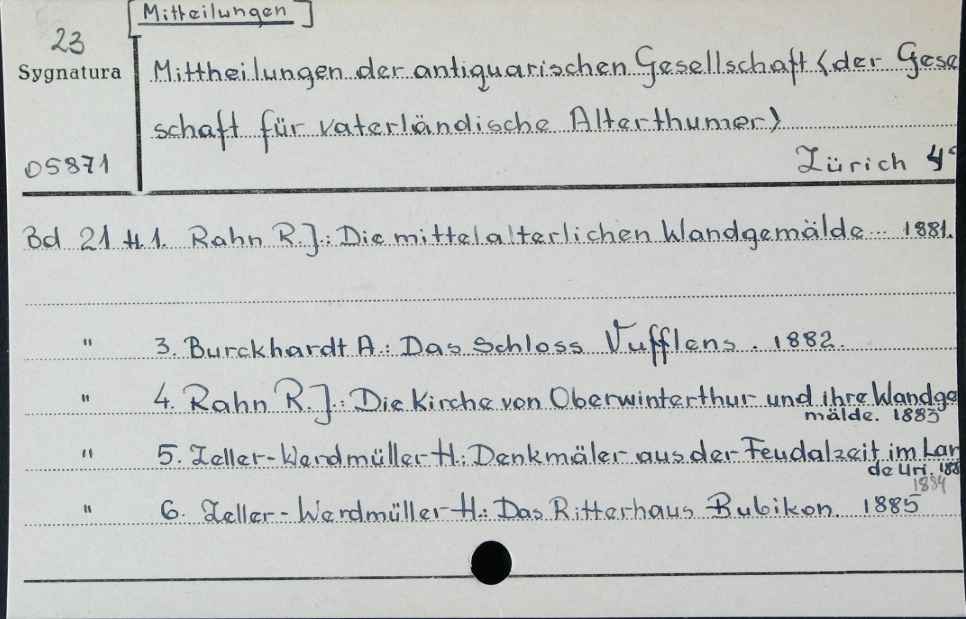 [Mitteilungen]
23
Sygnatura
Mittheilungen der antiquarischen Gesellschaft (der Gese
schaft für vaterländische Alterthumer)
DS871
Zürich 4°
Bd 21 H.1. Rahn R.J.: Die mittelalterlichen Wandgemälde... 1881.
" 3. Burckhardt A.: Das Schloss Vufflens. 1882.
" 4. Rahn R.J.: Die Kirche von Oberwinterthur und ihre Wandge
mälde. 1883
" 5. Zeller-Werdmüller H.: Denkmäler aus der Feudalzeit im Lan
de Uri. 188
1884
" 6. Zeller-Werdmüller H.: Das Ritterhaus Bubikon. 1885